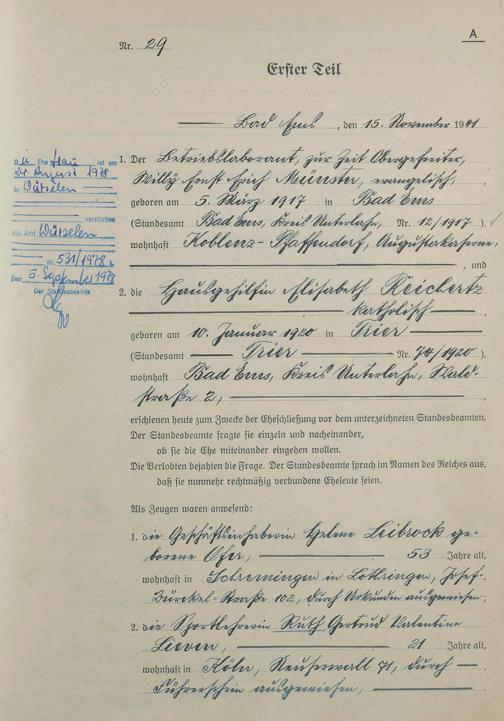 A
Nr. 29
Erster Teil
Bad Ems, den 15. November 1941
1. Der Betriebslaborant, zur Zeit Obergefreiter,
Willy Ernst Erich Münster, evangelisch,
geboren am 5. März 1917 in Bad Ems
(Standesamt Bad Ems, Kreis Unterlahn, Nr. 12/1917)
wohnhaft Koblenz-Pfaffendorf, Augustakaserne,
und
2. die Hausgehilfin Elisabeth Reichertz
katholisch
geboren am 10. Januar 1920 in Trier
(Standesamt Trier Nr. 74/1920)
wohnhaft Bad Ems, Kreis Unterlahn, Wald-
straße 2,
erschienen heute zum Zwecke der Eheschließung vor dem unterzeichneten Standesbeamten.
Der Standesbeamte fragte sie einzeln und nacheinander,
ob sie die Ehe miteinander eingehen wollen.
Die Verlobten bejahten die Frage. Der Standesbeamte sprach im Namen des Reiches aus,
daß sie nunmehr rechtmäßig verbundene Eheleute seien.
Als Zeugen waren anwesend:
1. die Geschäftsinhaberin Helene Leibrock ge-
borene Ofer, 53 Jahre alt,
wohnhaft in in Lothringen, Josef-
Bürckel-Straße 102, durch Urkunden ausgewiesen.
2. die Sportlehrerin Ruth Gertrud Valentine
Lieven, 21 Jahre alt,
wohnhaft in Köln, 71, durch
Führerschein ausgewiesen,
Ehefrau ist am
24. August 1978
in Würselen
verstorben
St. Amt Würselen
Nr. 531/1978
Den 5. September 1978
Der Standesbeamte